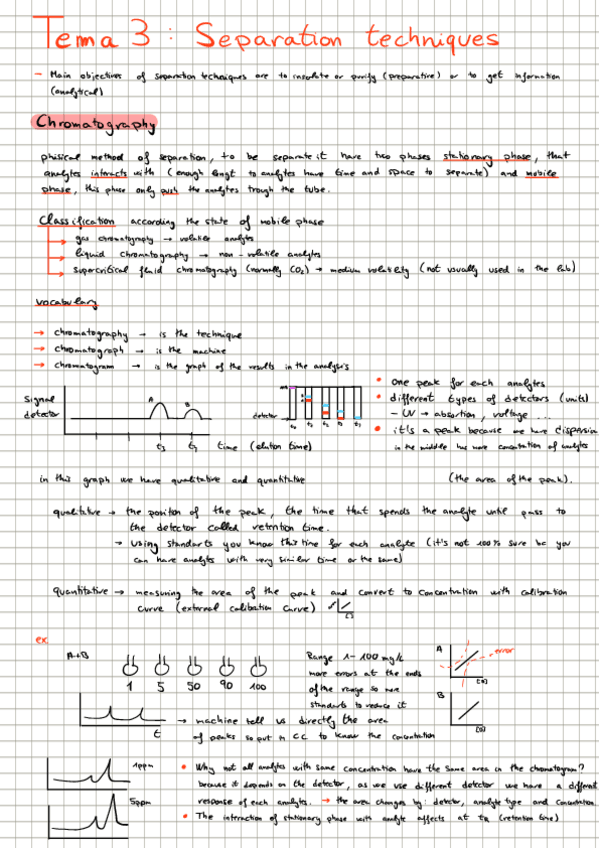 Tema 3 : Separation techniques
- Main objectives of separation techniques are to insolate or purify (preparative) or to get information
(analytical)
Chromatography
phisical method of separation, to be separate it have two phases stationary phase, that
analytes interacts with (enough lengt to analytes have time and space to separate) and mobile
phase, this phase only push the analytes trough the tube.
Classification according the state of mobile phase
gas chromatography → volatile analytes
liquid chromatography → non-volatile analytes
supercritical fluid chromatography (normally CO2) → medium volatility (not usually used in the lab)
vocabulary
→ chromatography - is the technique
→ chromatograph - is the machine
→ chromatogram - is the graph of the results in the analysis
• one peak for each analytes
signal
detector
A
B
t3
time (elution time)
detector
• different types of detectors (units)
- UV → absortion, voltage ...
• it's a peak because we have dispersion
in the middle has more concentration of analytes
in this graph we have qualitative and quantitative (the area of the peak).
qualitative → the position of the peak, the time that spends the analyte until pass to
the detector called retention time.
→ using standarts you know this time for each analyte (it's not 100% sure bc you
can have analyts with very similar time or the same)
quantitative → measuring the area of the peak and convert to concentration with calibration
curve (external calibration curve)
ex
A+B
1 5 50 90 100
Range 1-100 mg/L
more errors at the ends
of the range so more
standarts to reduce it
A
error
B
t
→ machine tell us directly the area
of peaks so put in CC to know the concentration
1ppm
5ppm
• Why not all analytes with same concentration have the same area in the chromatogram?
because it depends on the detector, as we use different detector we have a different
response of each analytes. → the area changes by: detector, analyte type and concentration
• The interaction of stationary phase with analyte affects at tR (retention time)